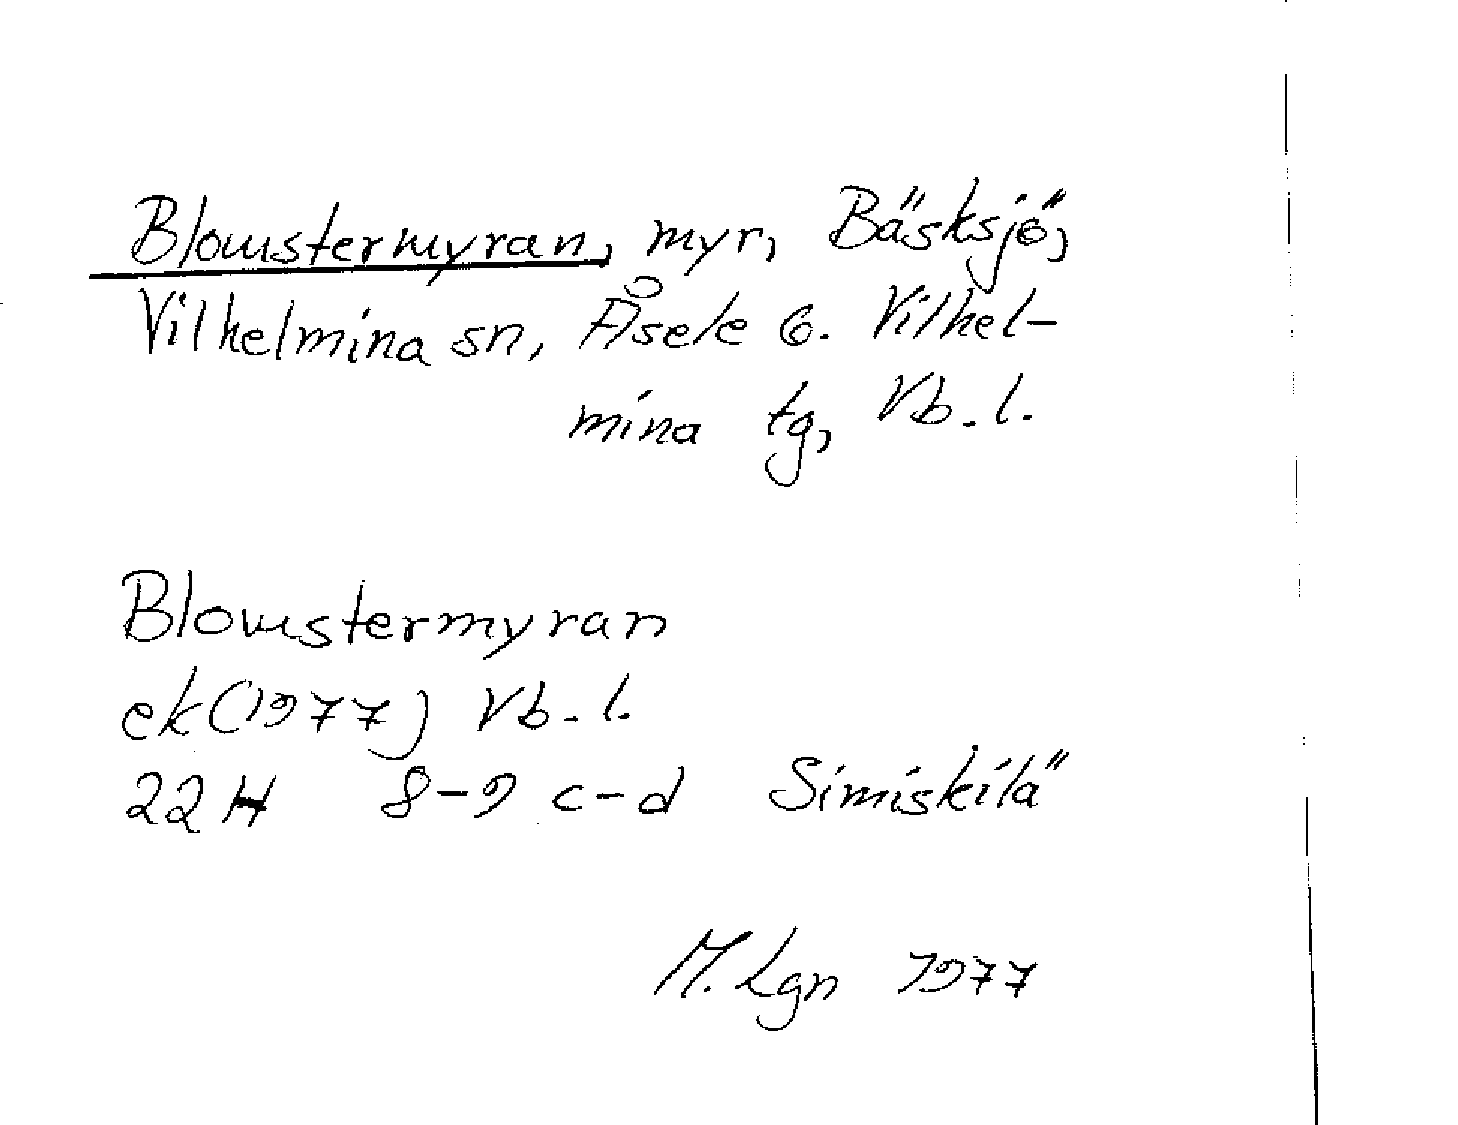 Blomstermyran, myr, Bäsksjö,
Vilhelmina sn, Åsele 6. Vilhel-
mina tg, Vb. l.
Blomstermyran
ek (1977) Vb. l.
22 H 8-9 c-d Simiskilä
M. Lgn 1977